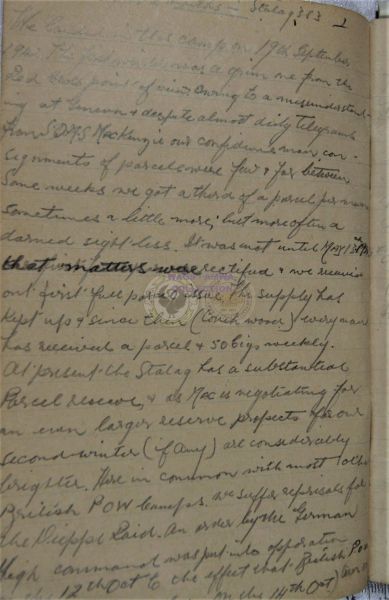 months — Stalag 383 1
We landed in this camp on 19th September
1942. The first winter was a grim one from the
Red Cross point of view, owing to a misunderstand-
ing at Geneva & despite almost daily telegrams
from S.Q.M.S MacKenzie our confidence man, con-
signments of parcels were few & far between.
Some weeks we got a third of a parcel per man
sometimes a little more, but more often a
darned sight less. It was not until May
that matters were rectified & we received
our first full parcel issue. The supply has
kept up & since then (touch wood) every man
has received a parcel & 50 cigs weekly.
At present the Stalag has a substantial
Parcel reserve, & as Mac is negotiating for
an even larger reserve prospects for our
second winter (if any) are considerably
brighter. Here in common with most other
British POW Camps. we suffer reprisals for
the Dieppe Raid. An order by the German
High command was put into opperation
on the 12th Oct to the effect that British POW
on the 14th Oct)